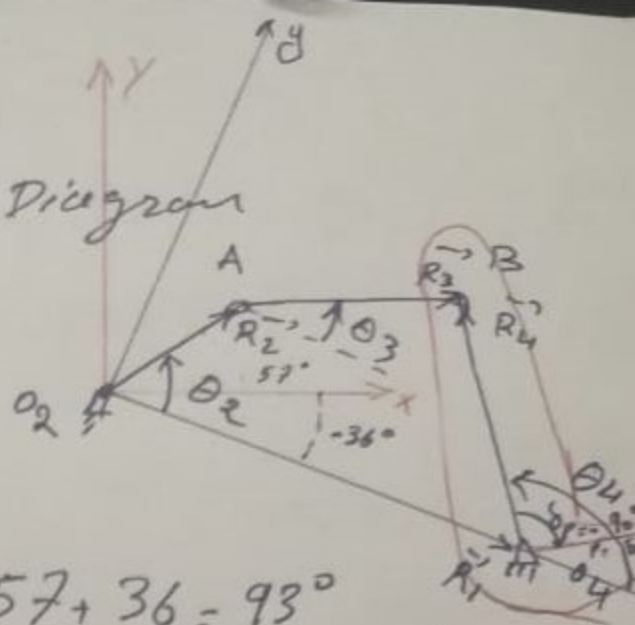 y
Y
Diagram
A
R3 B
R2 θ3 R4
57°
O2 θ2 x
-36°
θ4
R1 θ4
57+36=93°